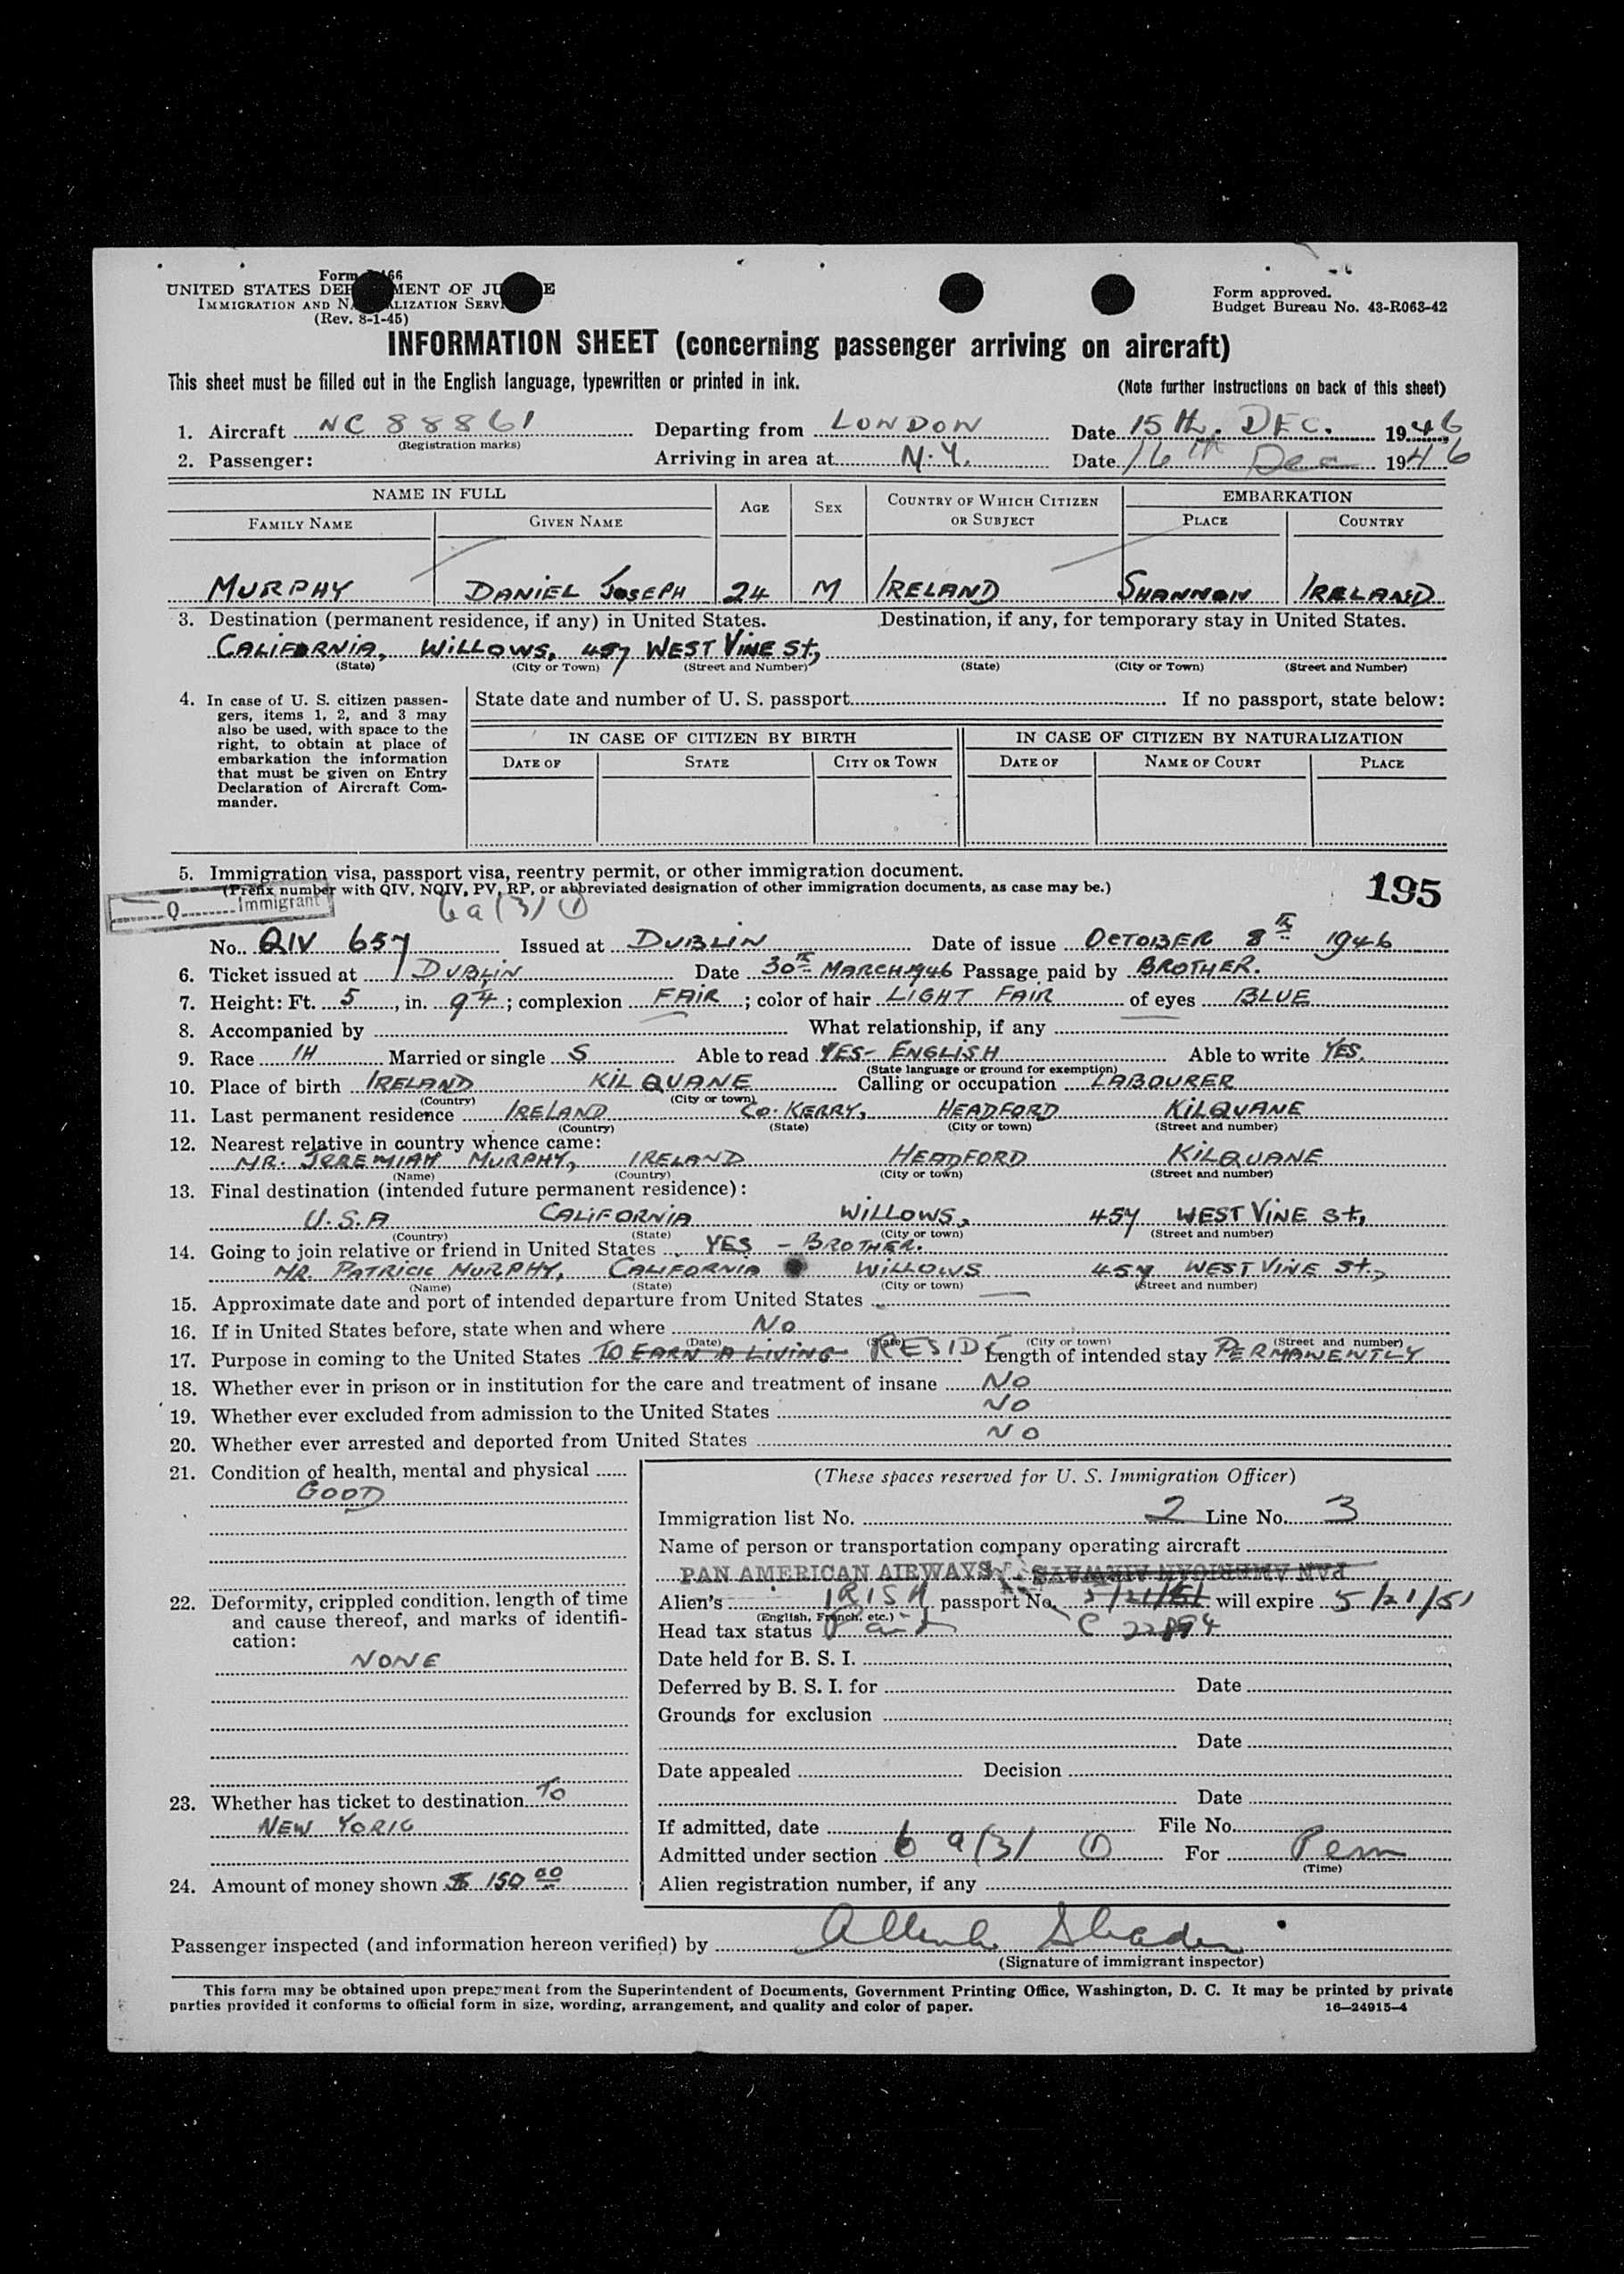 Form I-466
UNITED STATES DEPARTMENT OF JUSTICE
IMMIGRATION AND NATURALIZATION SERVICE
(Rev. 8-1-45)
Form approved.
Budget Bureau No. 43-R063-42
INFORMATION SHEET (concerning passenger arriving on aircraft)
This sheet must be filled out in the English language, typewritten or printed in ink.
(Note further instructions on back of this sheet)
1. Aircraft NC 88861 Departing from LONDON Date 15th. DEC. 1946
(Registration marks)
2. Passenger: Arriving in area at N.Y. Date 16th Dec 1946
NAME IN FULL AGE SEX COUNTRY OF WHICH CITIZEN OR SUBJECT EMBARKATION
FAMILY NAME GIVEN NAME PLACE COUNTRY
MURPHY DANIEL JOSEPH 24 M IRELAND SHANNON IRELAND
3. Destination (permanent residence, if any) in United States. Destination, if any, for temporary stay in United States.
CALIFORNIA, WILLOWS, 457 WEST VINE St,
(State) (City or Town) (Street and Number) (State) (City or Town) (Street and Number)
4. In case of U. S. citizen passen-
gers, items 1, 2, and 3 may
also be used, with space to the
right, to obtain at place of
embarkation the information
that must be given on Entry
Declaration of Aircraft Com-
mander.
State date and number of U. S. passport If no passport, state below:
IN CASE OF CITIZEN BY BIRTH IN CASE OF CITIZEN BY NATURALIZATION
DATE OF STATE CITY OR TOWN DATE OF NAME OF COURT PLACE
5. Immigration visa, passport visa, reentry permit, or other immigration document.
(Prefix number with QIV, NQIV, PV, RP, or abbreviated designation of other immigration documents, as case may be.)
195
Q Immigrant
6a(3) (1)
No. QIV 657 Issued at DUBLIN Date of issue OCTOBER 8th 1946
6. Ticket issued at DUBLIN Date 30th MARCH 1946 Passage paid by BROTHER.
7. Height: Ft. 5, in. 9¼; complexion FAIR; color of hair LIGHT FAIR of eyes BLUE
8. Accompanied by What relationship, if any
9. Race IH Married or single S Able to read YES- ENGLISH Able to write YES.
(State language or ground for exemption)
10. Place of birth IRELAND KILQUANE Calling or occupation LABOURER
(Country) (City or town)
11. Last permanent residence IRELAND CO. KERRY, HEADFORD KILQUANE
(Country) (State) (City or town) (Street and number)
12. Nearest relative in country whence came:
MR. JEREMIAH MURPHY, IRELAND HEADFORD KILQUANE
(Name) (Country) (City or town) (Street and number)
13. Final destination (intended future permanent residence):
U.S.A CALIFORNIA WILLOWS, 457 WEST VINE St,
(Country) (State) (City or town) (Street and number)
14. Going to join relative or friend in United States YES - BROTHER.
MR. PATRICK MURPHY, CALIFORNIA WILLOWS 457 WEST VINE St.,
(Name) (State) (City or town) (Street and number)
15. Approximate date and port of intended departure from United States —
16. If in United States before, state when and where NO
(Date) (State) (City or town) (Street and number)
17. Purpose in coming to the United States TO EARN A LIVING RESIDE Length of intended stay PERMANENTLY
18. Whether ever in prison or in institution for the care and treatment of insane NO
19. Whether ever excluded from admission to the United States NO
20. Whether ever arrested and deported from United States NO
21. Condition of health, mental and physical
GOOD
22. Deformity, crippled condition, length of time
and cause thereof, and marks of identifi-
cation:
NONE
23. Whether has ticket to destination TO
NEW YORK
24. Amount of money shown $ 150 00
(These spaces reserved for U. S. Immigration Officer)
Immigration list No. 2 Line No. 3
Name of person or transportation company operating aircraft
PAN AMERICAN AIRWAYS PAN AMERICAN AIRWAYS
Alien's IRISH passport No. 5/21/51 will expire 5/21/51
(English, French, etc.)
Head tax status Paid C 22894
Date held for B. S. I.
Deferred by B. S. I. for Date
Grounds for exclusion
Date
Date appealed Decision
Date
If admitted, date File No.
Admitted under section 6 a(3) (1) For Perm
(Time)
Alien registration number, if any
Passenger inspected (and information hereon verified) by
(Signature of immigrant inspector)
This form may be obtained upon prepayment from the Superintendent of Documents, Government Printing Office, Washington, D. C. It may be printed by private
parties provided it conforms to official form in size, wording, arrangement, and quality and color of paper. 16—24915-4